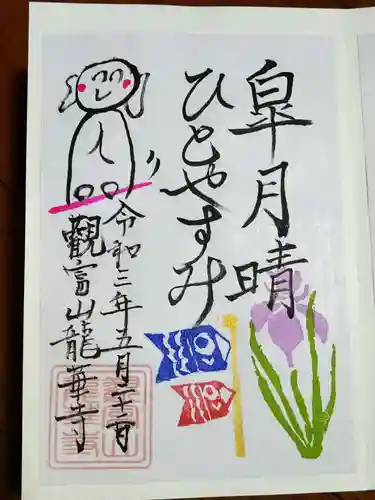 皐月晴
ひとやすみ
令和三年五月二十二日
觀富山龍華寺